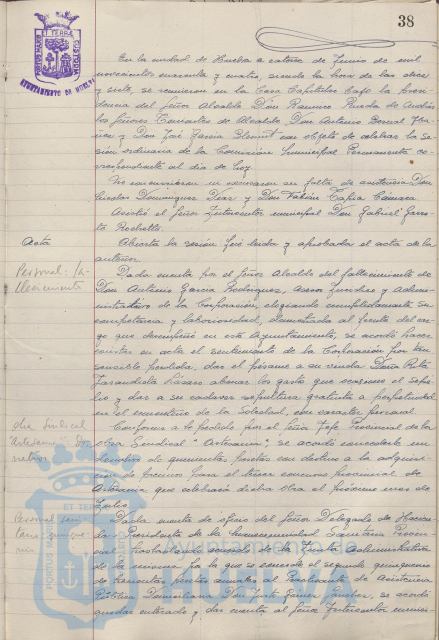 38
PORTUS MARIS ET TERRAE CUSTODIA
AYUNTAMIENTO DE HUELVA
En la ciudad de Huelva a catorce de Junio de mil
novecientos cuarenta y cuatro, siendo la hora de las diez
y siete, se reunieron en la Casa Capitular bajo la presi-
dencia del Señor Alcalde Don Ramiro Rueda de Andía
los Señores Tenientes de Alcalde Don Antonio Bernal
y Don José Garcia con objeto de celebrar la se-
sión ordinaria de la Comisión Municipal Permanente co-
rrespondiente al día de hoy.
No concurrieron ni excusaron su falta de asistencia Don
Dominguez Diaz y Don Fabián Tapia Cámara
Asistió el Señor Interventor municipal Don Gabriel
Rochelt.
Acta
Abierta la sesión fué leida y aprobada el acta de la
anterior.
Personal: fa-
llecimiento
Dada cuenta por el Señor Alcalde del fallecimiento de
Don Antonio Garcia Rodriguez, Asesor Jurídico y Admi-
nistrativo de la Corporación, elogiando cumplidamente su
competencia y laboriosidad, demostrada al frente del car-
go que desempeñó en este Ayuntamiento, se acordó hacer
constar en acta el sentimiento de la Corporación por tan
sensible pérdida, dar el pésame a su viuda Doña Rita
Lazaro abonar los gastos que ocasione el sepe-
lio y dar a su cadaver sepultura gratuita a perpetuidad
en el cementerio de la Soledad, con caracter personal.
Obra Sindical
"Artesania" Do-
nativo
Conforme a lo pedido por el Señor Jefe Provincial de la
Obra Sindical "Artesania", se acordó concederle un
donativo de quinientas pesetas con destino a la adquisi-
ción de premios para el tercer concurso provincial de
Artesanía que celebrará dicha obra el próximo mes de
Julio.
Personal
quinque-
nio
Dada cuenta de oficio del Señor Delegado de Hacien-
da Presidente de la Mancomunidad Sanitaria Provin-
cial trasladando acuerdo de la Junta Administrativa
de la misma por la que se concede el segundo quinquenio
de pesetas anuales al Practicante de Asistencia
Pública Domiciliaria Don Justo Gómez Sánchez, se acordó
quedar enterado y dar cuenta al Señor Interventor munici-
Ayuntamiento de
HUELVA